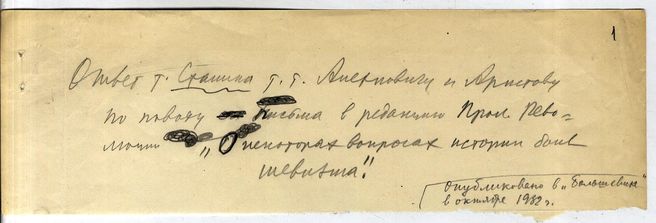 1
Ответ т. Сталина т.т. Алехновичу и Аристову
по поводу письма в редакцию Прол. Рево-
люции „О некоторых вопросах истории боль
шевизма".
Опубликовано в „Большевик"
в октябре 1932 г.